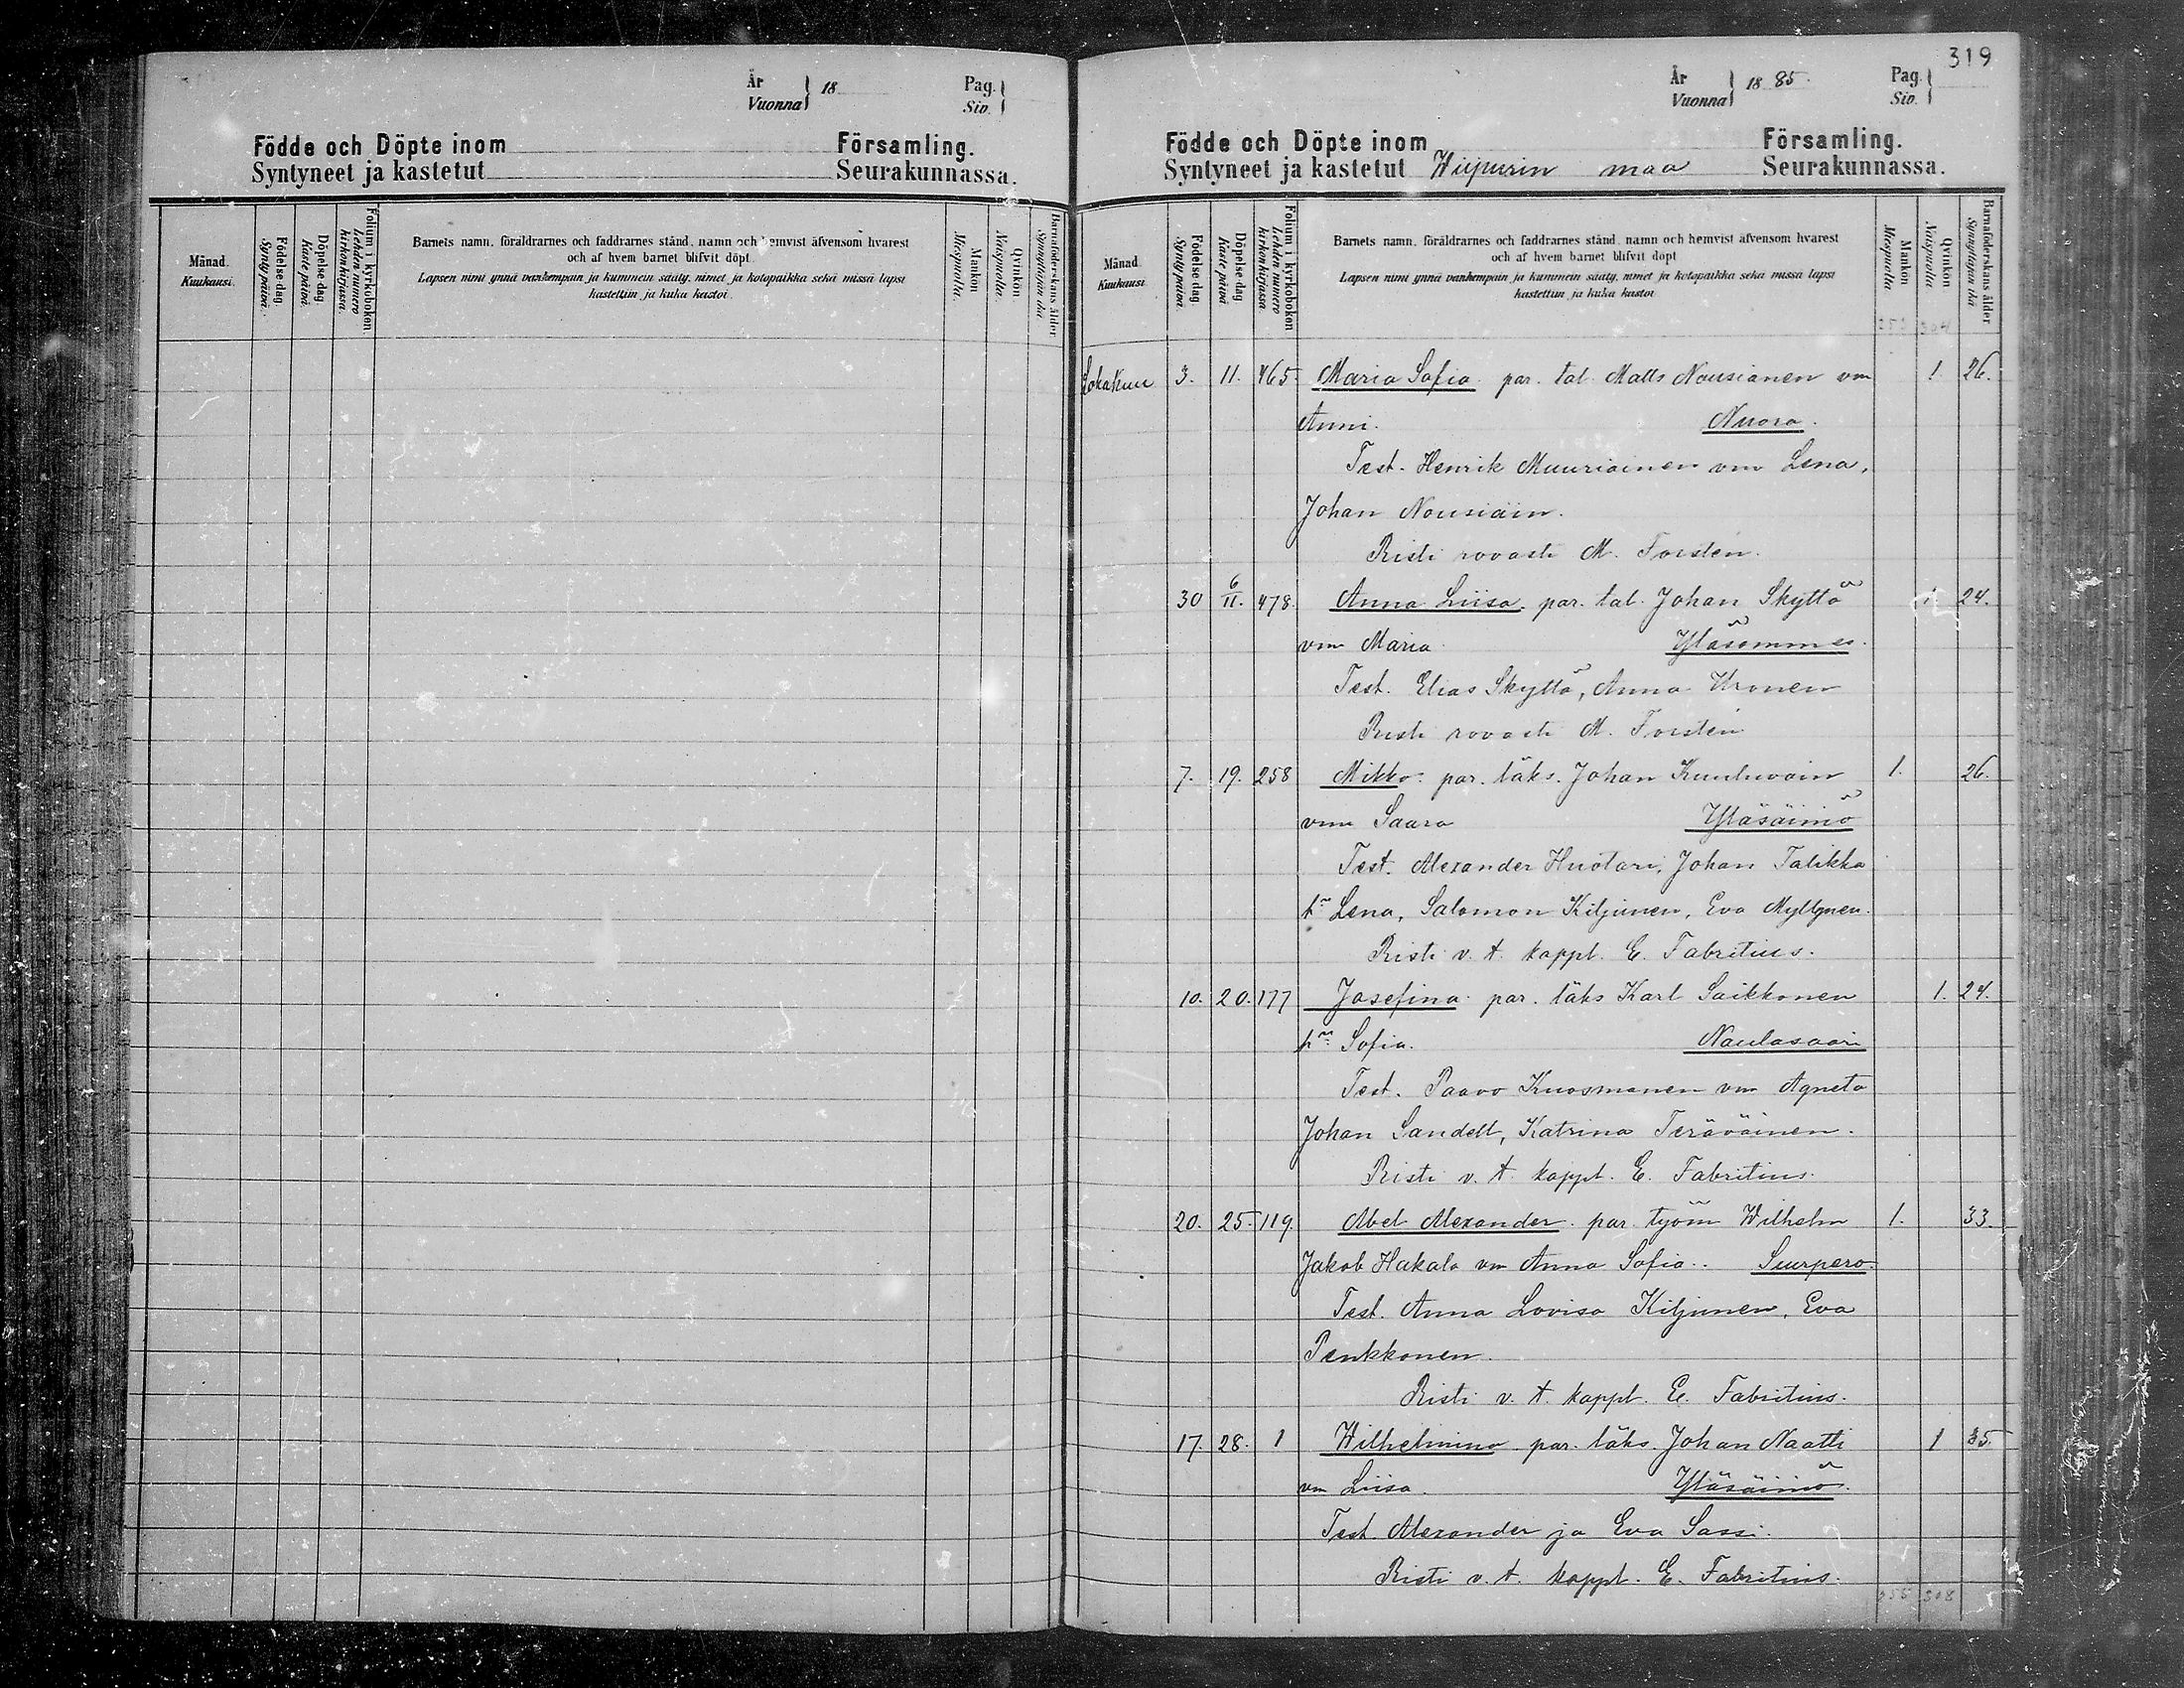 År
Vuonna } 18
Pag.
Siv.
Födde och Döpte inom Församling.
Syntyneet ja kastetut Seurakunnassa.
Månad.
Kuukausi.
Födelse-dag.
Synty päivä.
Döpelse-dag.
Kaste päivä.
Folium i kyrkoboken.
Lehden numero
kirkonkirjassa.
Barnets namn, föräldrarnes och faddrarnes stånd, namn och hemvist äfvensom hvarest
och af hvem barnet blifvit döpt.
Lapsen nimi ynnä vanhempain ja kummein sääty, nimet ja kotopaikka sekä missä lapsi
kastettiin ja kuka kastoi.
Mankön
Miespuolta.
Qvinkön
Naispuolta.
Barnaföderskans ålder
Synnyttäjän ikä
319
År
Vuonna } 1885.
Pag.
Siv.
Födde och Döpte inom Församling.
Syntyneet ja kastetut Wiipurin maa Seurakunnassa.
Månad.
Kuukausi.
Födelse-dag.
Synty päivä.
Döpelse-dag
Kaste päivä.
Folium i kyrkoboken
Lehden numero
kirkonkirjassa.
Barnets namn, föräldrarnes och faddrarnes stånd, namn och hemvist äfvensom hvarest
och af hvem barnet blifvit döpt
Lapsen nimi ynnä vanhempain ja kummein sääty, nimet ja kotopaikka sekä missä lapsi
kastettiin ja kuka kastoi
Mankön
Miespuolta
Qvinkön
Naispuolta
Barnaföderskans ålder
Synnyttäjän ikä
304
Lokakuu 3. 11. 465. Maria Sofia. par. tal. Matts Nousianen vm 1 26.
Anni. Nuora.
Test. Henrik Muuriainen vm Lena,
Johan Nousiain.
Risti rovasti M. Forstén.
30 6/11. 478. Anna Liisa. par. tal. Johan Skyttä 1. 24.
vm Maria. Yläsommee.
Test. Elias Skyttä, Anna Uronen
Risti rovasti M. Forstén
7. 19. 258 Mikko. par. läks. Johan Kuuluvain 1. 26.
vm Saara Yläsäiniö
Test. Alexander Huotari, Johan Talikka
hr Lena, Salomon Kiljunen, Eva Myllynen.
Risti v. t. kappl. E. Fabritius.
10. 20. 177 Josefina. par. läks Karl Saikkonen 1. 24.
hr Sofia. Naulasaari
Test. Paavo Kuosmanen vm Agneta
Johan Sandell, Katrina Teräväinen.
Risti v. t. kappl. E. Fabritius.
20. 25. 119. Abel Alexander. par. työm Wilhelm 1. 33.
Jakob Hakala vm Anna Sofia.. Suurpero.
Test. Anna Lovisa Kiljunen, Eva
Penkkonen.
Risti v. t. kappl. E. Fabritius.
17. 28. 1 Wilhelmina. par. läks. Johan Naatti 1 35.
vm Liisa. Yläsäiniö.
Test. Alexander ja Eva Sassi.
Risti v. t. kappl. E. Fabritius.
255 308